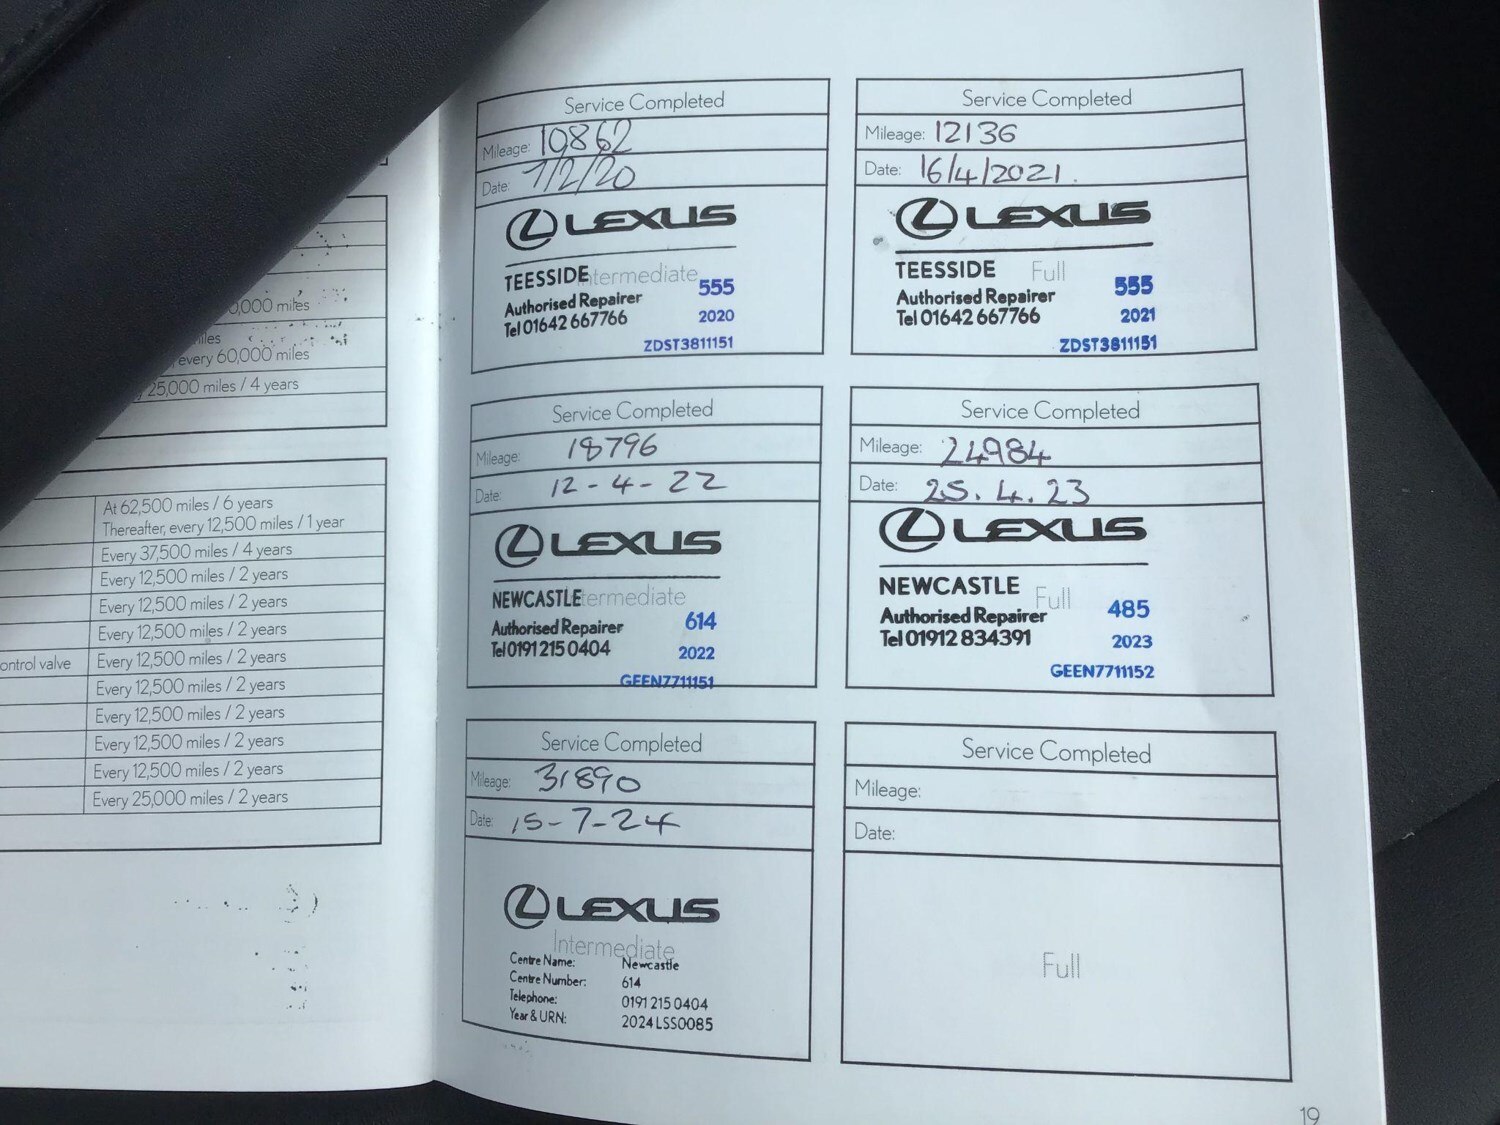 0,000 miles
miles
, every 60,000 miles
25,000 miles / 4 years
At 62,500 miles / 6 years
Thereafter, every 12,500 miles / 1 year
Every 37,500 miles / 4 years
Every 12,500 miles / 2 years
Every 12,500 miles / 2 years
Every 12,500 miles / 2 years
ontrol valve Every 12,500 miles / 2 years
Every 12,500 miles / 2 years
Every 12,500 miles / 2 years
Every 12,500 miles / 2 years
Every 12,500 miles / 2 years
Every 25,000 miles / 2 years
Service Completed
Mileage: 10862
Date: 7/2/20
LEXUS
TEESSIDE Intermediate
555
Authorised Repairer
Tel 01642 667766
2020
ZDST3811151
Service Completed
Mileage: 12136
Date: 16/4/2021.
LEXUS
TEESSIDE Full
555
Authorised Repairer
Tel 01642 667766
2021
ZDST3811151
Service Completed
Mileage: 18796
Date: 12-4-22
LEXUS
NEWCASTLE Intermediate
614
Authorised Repairer
Tel 0191 215 0404
2022
GEEN7711151
Service Completed
Mileage: 24984
Date: 25.4.23
LEXUS
NEWCASTLE Full
485
Authorised Repairer
Tel 01912 834391
2023
GEEN7711152
Service Completed
Mileage: 31890
Date: 15-7-24
LEXUS
Intermediate
Centre Name: Newcastle
Centre Number: 614
Telephone: 0191 215 0404
Year & URN: 2024 LSS0085
Service Completed
Mileage:
Date:
Full
19